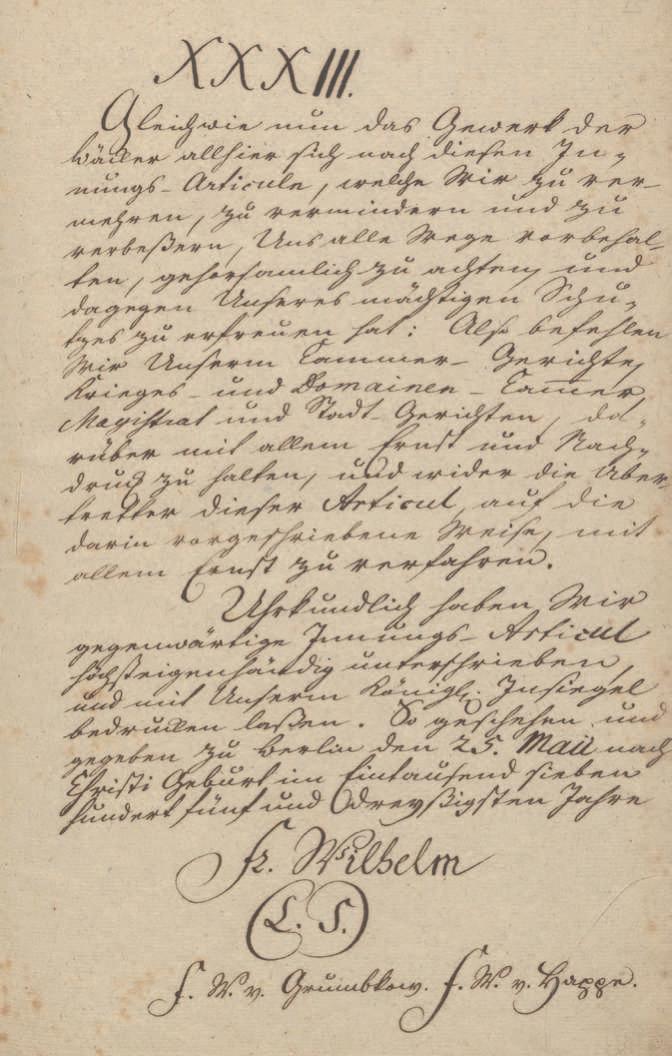 XXXIII.
Gleichwie nun das Gewerk der
Bäcker allhier sich nach diesen In-
nungs-Articuln, welche Wir zu ver-
mehren, zu vermindern und zu
verbeßern, Uns alle Wege vorbehal-
ten, gehorsamlich zu achten, und
dagegen Unseres mächtigen Schu-
tzes zu erfreuen hat: Also befehlen
Wir Unserm Cammer-Gerichte,
Krieges- und Domainen-Cam̅er,
Magistrat und Stadt-Gerichten, da-
rüber mit allem Ernst und Nach-
druck zu halten, und wider die Über-
tretter dieser Articul, auf die
darin vorgeschriebene Weise, mit
allem Ernst zu verfahren.
Uhrkundlich haben Wir
gegenwärtige Innungs-Articul
höchsteigenhändig unterschrieben,
und mit Unserm Königl. Insiegel
bedrucken laßen. So geschehen und
gegeben zu Berlin den 25. Maii nach
Christi Geburt im Eintausend sieben
hundert fünf und dreyßigsten Jahre
Fr. Wilhelm
(L. S.)
F. W. v. Grumbkow. F. W. v. Happe.